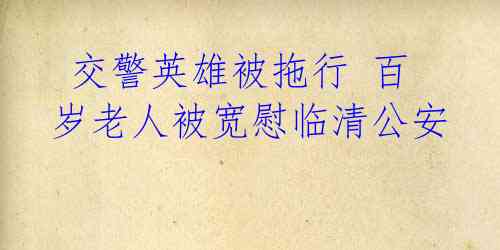 交警英雄被拖行 百
岁老人被宽慰临清公安